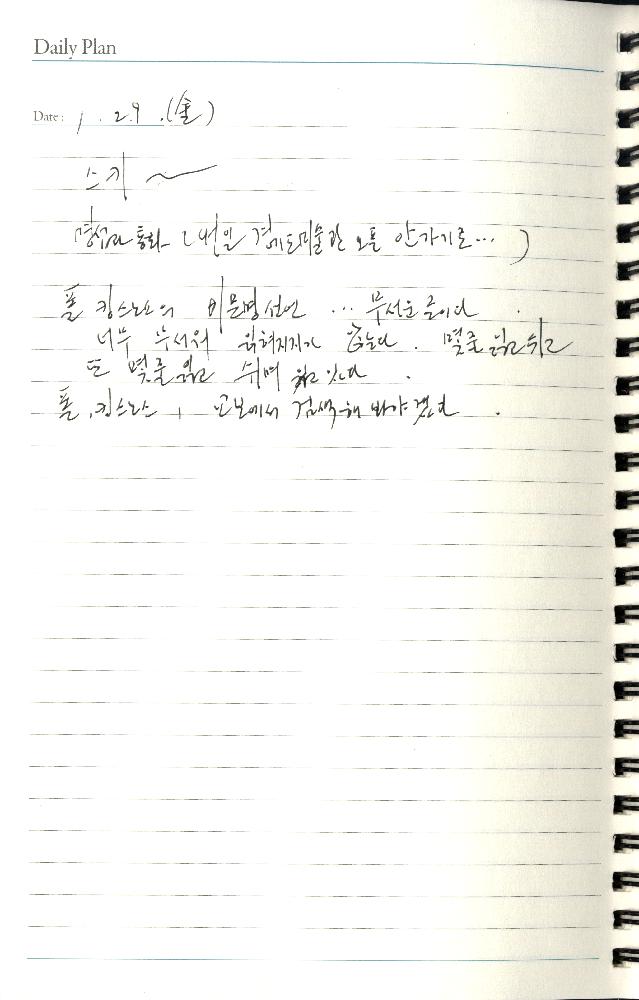 Daily Plan
Date: 1. 29. (金)
스키 ~
통화 (내일 경기도미술관 오픈 안가기로... )
폴 킹스노스의 비문명선언 ... 무서운 글이다.
너무 무서워 읽혀지지가 않는다. 몇줄 읽고 쉬고
또 몇줄 읽고 쉬며 읽고 있다.
폴.킹스노스, 교보에서 검색해 봐야겠다.